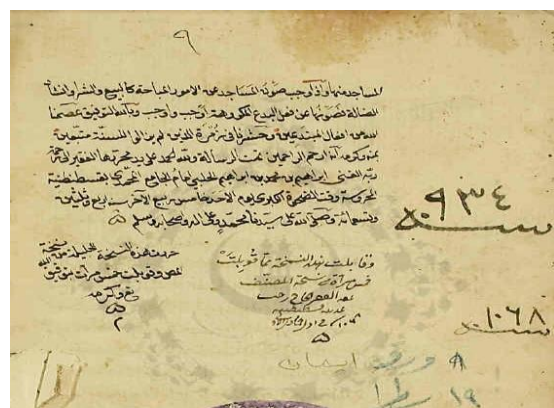 ٩
المساجد منها واذا وجب صون المساجد عن الامور المباحة كالبيع والشراء وانشاد
الضالة فصونها عن فعل البدع المكروهة اوجب واوجب وبالله التوفيق عصمنا
الله من افعال المبتدعين وحشرنا في زمرة الذين لم يزالوا للسنة متبعين
بمنه وكرمه انه ارحم الراحمين تمت الرسالة ولله الحمد على يد محررها الفقير الى رحمة
ربه الغني ابراهيم بن محمد بن ابراهيم الحلبي امام الجامع المحمدي بقسطنطينية
المحروسة وقت الضحوة الكبرى يوم الاحد خامس ربيع الاخر سنة اربع وثلثين
وتسعمائة وصلى الله على سيدنا محمد وعلى اله وصحابه وسلم
سنة ٩٣٤
حررت هذه النسخة الجليلة من نسخة
المصنف وقوبلت خمس مرات بتوفيق
وكرمه
وقابلت هذه النسخة بما قوبلت
خمس مرات بنسخة المصنف
سنة ١٠٦٨
٨ ورقة
١٩ سطرا